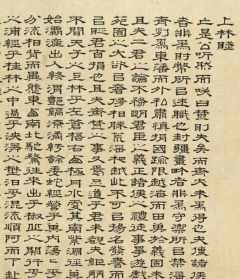 上林賦
亡是公听然而笑曰楚則失矣而齊亦未為得也夫使諸侯納貢
者非為財幣所以述職也封疆畫界者非為守禦所以禁淫也今
齊列為東藩而外私肅慎捐國踰限越海而田其於義固未可也
且夫二君之論不務明君臣之義正諸侯之禮徒事爭於游戲之樂
苑囿之大欲以奢侈相勝荒淫相越此不可以揚名發譽而適足
以貶君自損也且夫齊楚之事又焉足道乎君未睹夫巨麗也獨
不聞天子之上林乎左蒼梧右西極丹水更其南紫淵徑其北終
始灞滻出入涇渭酆鎬潦潏紆餘委蛇經營乎其內蕩蕩乎八川
分流相背而異態東西南北馳騖往來出乎椒丘之闕行乎洲淤
之浦經乎桂林之中過乎泱漭之野汩乎混流順阿而下赴